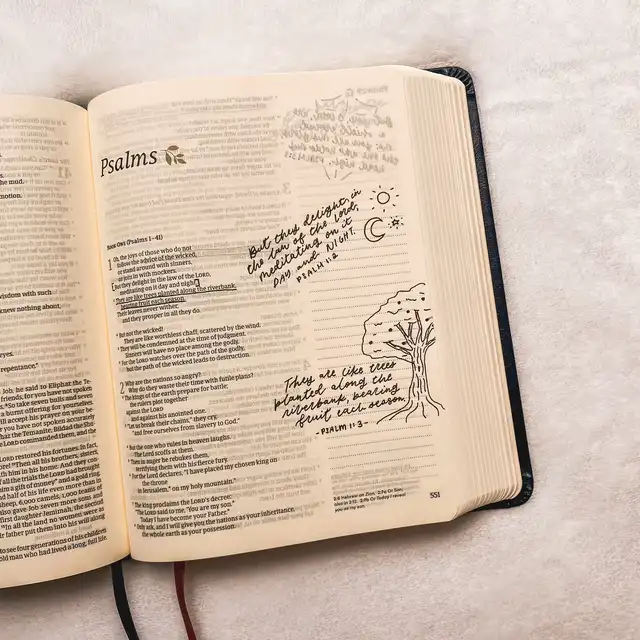 the mud.
motion.
wisdom with such
knew nothing about,
eyes.
repentance."
Job, he said to Eliphaz the Te-
So take seven bulls and seven
a burnt offering for yourselves.
will accept his prayer on your be-
you have not spoken accurately
the Temanite, Bildad the Shu-
LORD commanded them, and the
LORD restored his fortunes. In fact,
before! Then all his brothers, sisters,
with him in his home. And they con-
all the trials the LORD had brought
a gift of money and a gold ring.
half of his life even more than in
sheep, 6,000 camels, 1,000 teams
also gave Job seven more sons and
first daughter Jemimah, the second
In all the land no women were as
father put them into his will along
to see four generations of his children
old man who had lived a long, full life.
Psalms
BOOK ONE (Psalms 1–41)
1 Oh, the joys of those who do not
follow the advice of the wicked,
or stand around with sinners,
or join in with mockers.
But they delight in the law of the LORD,
meditating on it day and night.
They are like trees planted along the riverbank,
bearing fruit each season.
Their leaves never wither,
and they prosper in all they do.
But not the wicked!
They are like worthless chaff, scattered by the wind.
They will be condemned at the time of judgment.
Sinners will have no place among the godly.
For the LORD watches over the path of the godly,
but the path of the wicked leads to destruction.
2 Why are the nations so angry?
Why do they waste their time with futile plans?
The kings of the earth prepare for battle;
the rulers plot together
against the LORD
and against his anointed one.
"Let us break their chains," they cry,
"and free ourselves from slavery to God."
But the one who rules in heaven laughs.
The Lord scoffs at them.
Then in anger he rebukes them,
terrifying them with his fierce fury.
For the Lord declares, "I have placed my chosen king on
the throne
in Jerusalem, on my holy mountain."
The king proclaims the LORD's decree:
"The LORD said to me, 'You are my son.
Today I have become your Father.
Only ask, and I will give you the nations as your inheritance,
the whole earth as your possession.
But they delight in
the law of the Lord,
meditating on it
DAY and NIGHT.
PSALM 1:2
They are like trees
planted along the
riverbank, bearing
fruit each season.
- PSALM 1:3 -
2:6 Hebrew on Zion. 2:7a Or Son;
also in 2:12. 2:7b Or Today I reveal
you as my son.
551